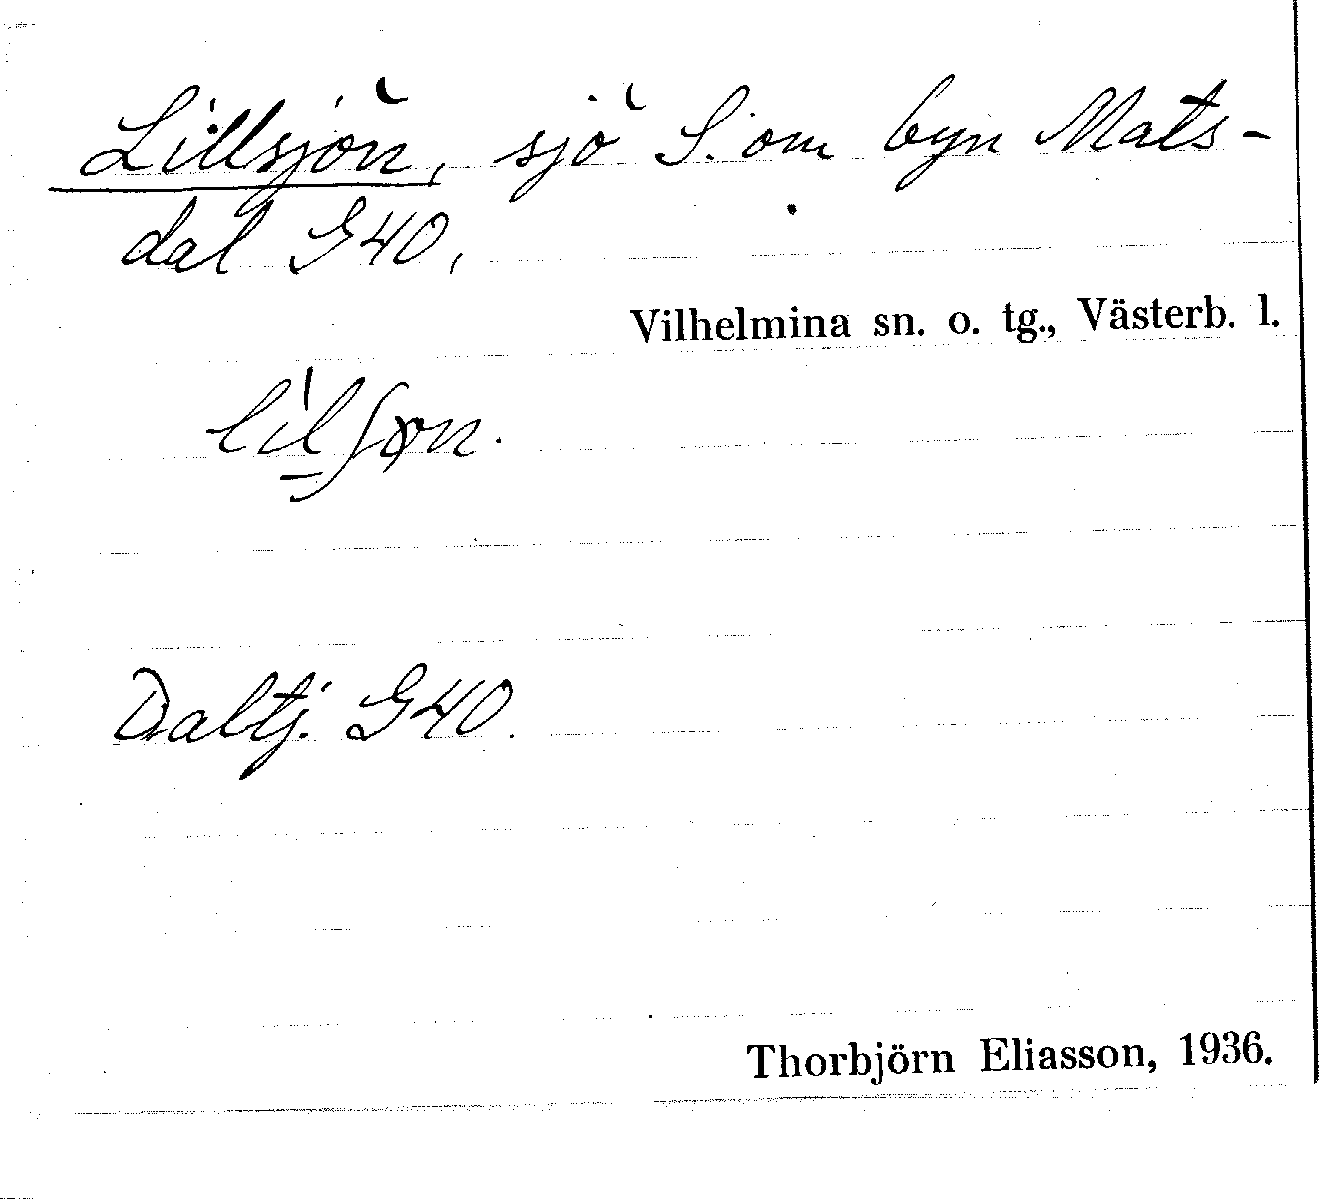 Lillsjön, sjö S. om byn Mats-
dal G40,
Vilhelmina sn. o. tg., Västerb. l.
lìlʃøn.
Daltj. G40.
Thorbjörn Eliasson, 1936.